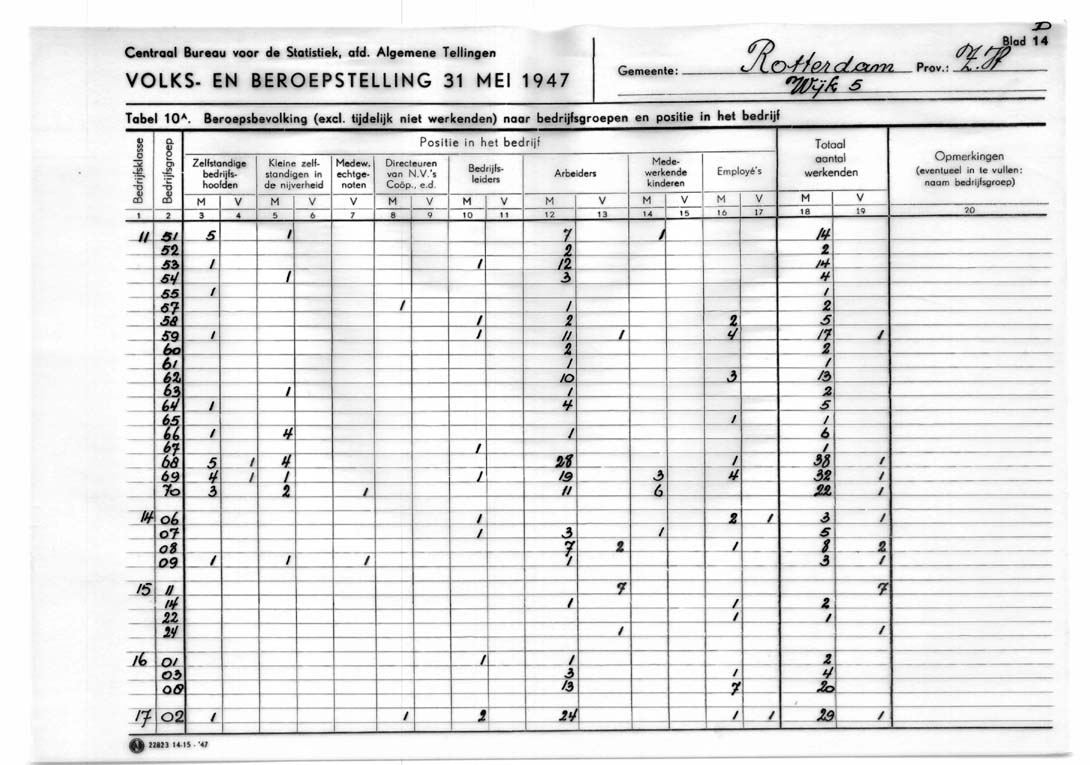 D
Centraal Bureau voor de Statistiek, afd. Algemene Tellingen
VOLKS- EN BEROEPSTELLING 31 MEI 1947
Gemeente: Rotterdam Prov.: Z.H. Blad 14
Wijk 5
Tabel 10A. Beroepsbevolking (excl. tijdelijk niet werkenden) naar bedrijfsgroepen en positie in het bedrijf
Bedrijfsklasse Bedrijfsgroep Positie in het bedrijf Totaal aantal werkenden Opmerkingen (eventueel in te vullen: naam bedrijfsgroep)
Zelfstandige bedrijfs-hoofden Kleine zelf-standigen in de nijverheid Medew. echtge-noten Directeuren van N.V.'s Coöp., e.d. Bedrijfs-leiders Arbeiders Mede-werkende kinderen Employé's
M V M V V M V M V M V M V M V M V
1 2 3 4 5 6 7 8 9 10 11 12 13 14 15 16 17 18 19 20
11 51 5 1 7 1 14
52 2 2
53 1 1 12 14
54 1 3 4
55 1 1
57 1 1 2
58 1 2 2 5
59 1 1 11 1 4 17 1
60 2 2
61 1 1
62 10 3 13
63 1 1 2
64 1 4 5
65 1 1
66 1 4 1 6
67 1 1
68 5 1 4 28 1 38 1
69 4 1 1 1 19 3 4 32 1
70 3 2 1 11 6 22 1
14 06 1 2 1 3 1
07 1 3 1 5
08 7 2 1 8 2
09 1 1 1 1 3 1
15 11 7 7
14 1 1 2
22 1 1
24 1 1
16 01 1 1 2
03 3 1 4
08 13 7 20
17 02 1 1 2 24 1 1 29 1
22823 14-15 - '47